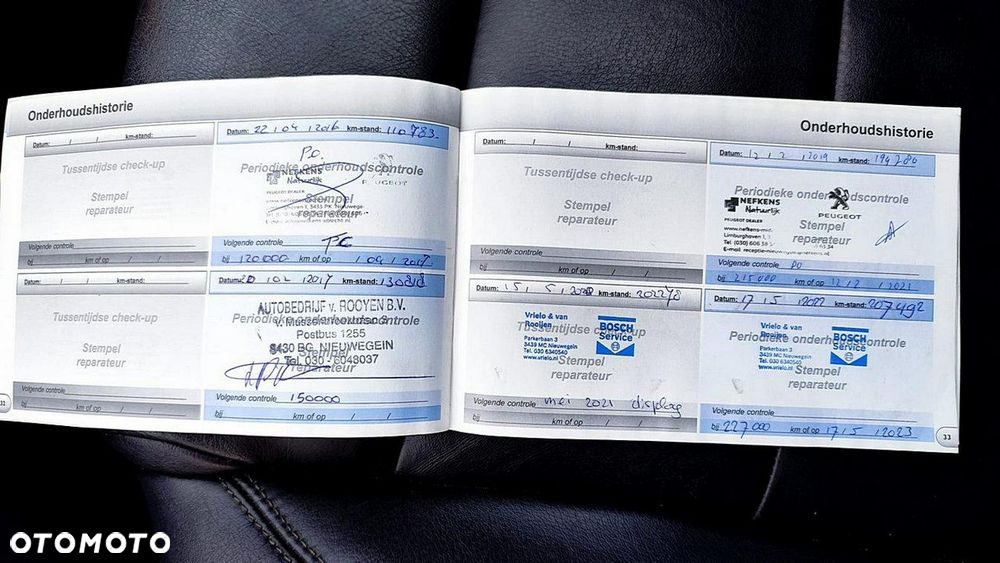 Onderhoudshistorie
Datum: / / km-stand:
Tussentijdse check-up
Stempel
reparateur
Volgende controle
bij km of op / /
Datum: 22 / 04 / 2016 km-stand: 110783
P.O.
Periodieke onderhoudscontrole
NEFKENS
Natuurlijk
PEUGEOT DEALER
PEUGEOT
Stempel
reparateur
Volgende controle
bij 120000 km of op / 04 / 2017
Datum: / / km-stand:
Tussentijdse check-up
Stempel
reparateur
Volgende controle
bij km of op / /
Datum: 20 / 02 / 2017 km-stand: 130818
AUTOBEDRIJF v. ROOYEN B.V.
Periodieke onderhoudscontrole
Postbus 1255
3430 BG NIEUWEGEIN
Stempel
Tel. 030 - 6048037
reparateur
Volgende controle 150000
bij km of op / /
32
Onderhoudshistorie
Datum: / / km-stand:
Tussentijdse check-up
Stempel
reparateur
Volgende controle
bij km of op / /
Datum: 12 / 2 / 2019 km-stand: 194780
Periodieke onderhoudscontrole
NEFKENS
Natuurlijk
PEUGEOT
PEUGEOT DEALER
Stempel
www.nefkens-mid.
Limburghoven 1,
reparateur
Tel. (030) 606 34
Volgende controle PO
bij 215000 km of op 12 / 2 / 2021
Datum: 15 / 5 / 2020 km-stand: 202278
Vrielo & van
Rooijen
Tussentijdse check-up
BOSCH
Service
Parkerbaan 3
3439 MC Nieuwegein
Tel. 030 6340540
www.vrielo.nl
Stempel
reparateur
Volgende controle mei 2021 display
bij km of op / /
Datum: 17 / 5 / 2022 km-stand: 207492
Vrielo & van
Rooijen
Periodieke onderhoudscontrole
BOSCH
Service
Parkerbaan 3
3439 MC Nieuwegein
Tel. 030 6340540
www.vrielo.nl
Stempel
reparateur
Volgende controle
bij 227000 km of op 17 / 5 / 2023
33
OTOMOTO